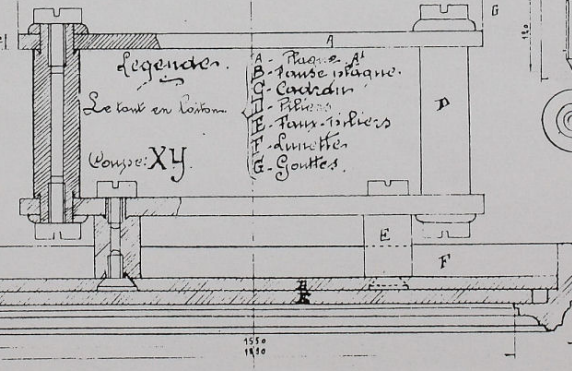 G
A
120
Légende.
Le tout en laiton
Coupe: XY
A - Plaque A'
B - Fausse plaque.
C - Cadran
D - Piliers
E - Faux-piliers
F - Lunette
G - Gouttes.
D
E
F
1550